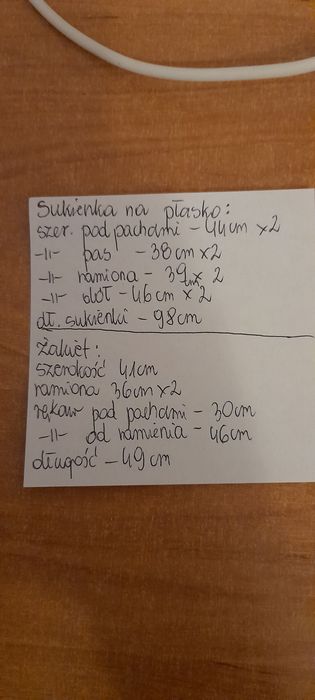 Sukienka na płasko:
szer. pod pachami - 44cm x2
-||- pas - 38cm x2
-||- ramiona - 39cm x 2
-||- dół - 46cm x 2
dł. sukienki - 98cm
Żakiet:
szerokość 41cm
ramiona 36cm x2
rękaw pod pachami - 30cm
-||- od ramienia - 46cm
długość - 49cm